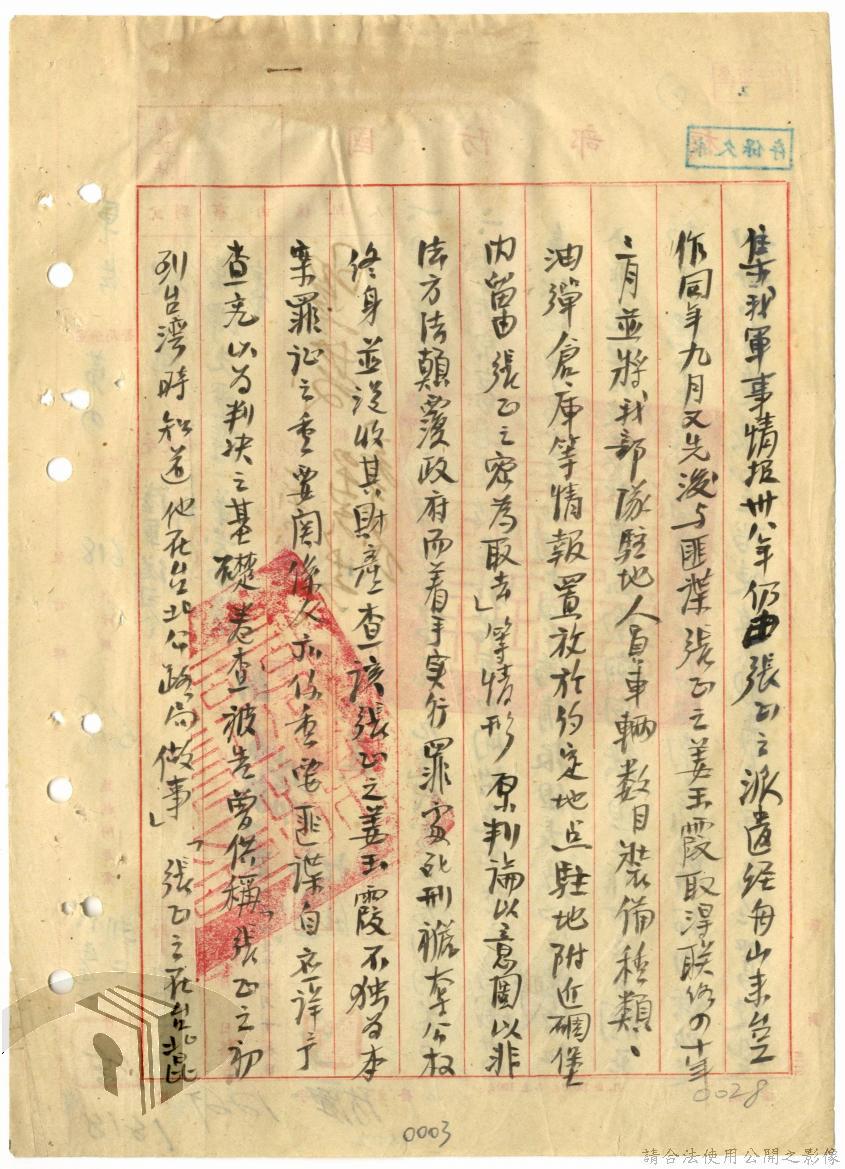 集我軍事情报卅八年仍由張正之派遣经舟山來台工
作同年九月又先後与匪諜張正之姜玉霞取得联络四十年
二月並將我部隊駐地人員車輛数目装備種類、
油彈倉庫等情報置放於约定地点駐地附近碉堡
內留由張正之密為取去」等情形原判論以意圖以非
法方法顛覆政府而着手实行罪處死刑褫奪公权
終身並没收其財產查該張正之姜玉霞不独为本
案罪证之重要関係人亦係重要匪諜自应詳予
查究以为判决之基礎卷查被告曾供稱「張正之初
到台湾時知道他在台北公路局做事」「張正之在台北混
0028
0003
請合法使用公開之影像